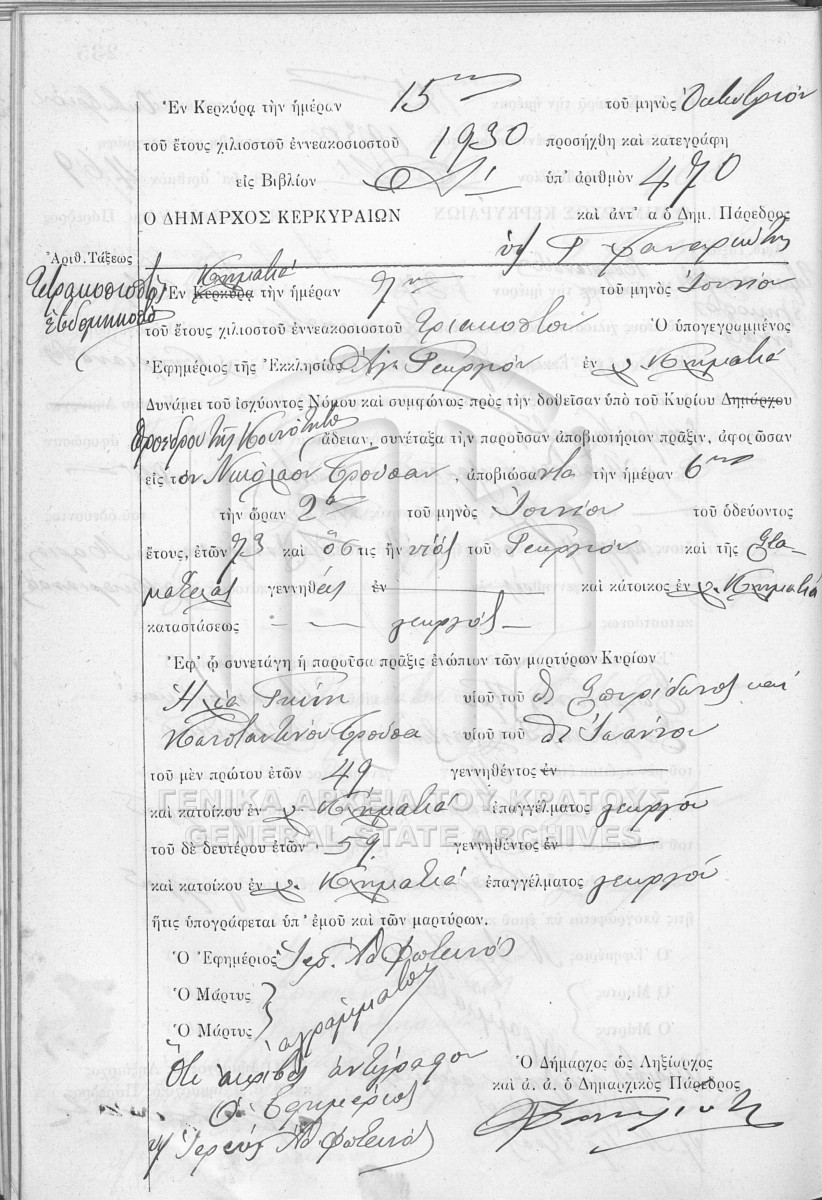 Ἐν Κερκύρᾳ τὴν ἡμέραν 15ην τοῦ μηνὸς Ὀκτωβρίου
τοῦ ἔτους χιλιοστοῦ ἐννεακοσιοστοῦ 1930 προσήχθη καὶ κατεγράφη
εἰς Βιβλίον ὑπ' ἀριθμὸν 470
Ο ΔΗΜΑΡΧΟΣ ΚΕΡΚΥΡΑΙΩΝ καὶ ἀντ' α ὁ Δημ. Πάρεδρος
Ἀριθ. Τάξεως
Κληματιά
Ἐν Κερκύρᾳ τὴν ἡμέραν 7ην τοῦ μηνὸς Ἰουνίου
τοῦ ἔτους χιλιοστοῦ ἐννεακοσιοστοῦ τριακοστοῦ Ὁ ὑπογεγραμμένος
Ἐφημέριος τῆς Ἐκκλησίας Ἁγ. Γεωργίου ἐν χ. Κληματιᾶ
Δυνάμει τοῦ ἰσχύοντος Νόμου καὶ συμφώνως πρὸς τὴν δοθεῖσαν ὑπὸ τοῦ Κυρίου Δημάρχου
Προέδρου τῆς Κοινότητος ἄδειαν, συνέταξα τὴν παροῦσαν ἀποβιωτήριον πρᾶξιν, ἀφορῶσαν
εἰς τὸν Νικόλαον Τρούσαν, ἀποβιώσαντα τὴν ἡμέραν 6ην
τὴν ὥραν 2α τοῦ μηνὸς Ἰουνίου τοῦ ὁδεύοντος
ἔτους, ἐτῶν 73 καὶ ὅστις ἦν υἱὸς τοῦ Γεωργίου καὶ τῆς Στα-
ματέλας γεννηθεὶς ἐν καὶ κάτοικος ἐν χ. Κληματιᾶ
καταστάσεως γεωργὸς
Ἐφ' ᾧ συνετάγη ἡ παροῦσα πρᾶξις ἐνώπιον τῶν μαρτύρων Κυρίων
Ἠλία Γκίνη υἱοῦ τοῦ Σπυρίδωνος καὶ
Κωνσταντίνου Τρούσα υἱοῦ τοῦ Ἰωάννου
τοῦ μὲν πρώτου ἐτῶν 49 γεννηθέντος ἐν
καὶ κατοίκου ἐν χ. Κληματιᾶ ἐπαγγέλματος γεωργοῦ
ΓΕΝΙΚΑ ΑΡΧΕΙΑ ΤΟΥ ΚΡΑΤΟΥΣ
GENERAL STATE ARCHIVES
τοῦ δὲ δευτέρου ἐτῶν 59 γεννηθέντος ἐν
καὶ κατοίκου ἐν χ. Κληματιᾶ ἐπαγγέλματος γεωργοῦ
ἥτις ὑπογράφεται ὑπ' ἐμοῦ καὶ τῶν μαρτύρων.
Ὁ Ἐφημέριος Ἱερ. Φωτεινός
Ὁ Μάρτυς
Ὁ Μάρτυς ἀγράμματοι
Ὅτι ἀκριβὲς ἀντίγραφον
Ὁ Ἐφημέριος
Ἱερεὺς Φωτεινός
Ὁ Δήμαρχος ὡς Ληξίαρχος
καὶ ἀ. ἀ. ὁ Δημαρχικὸς Πάρεδρος